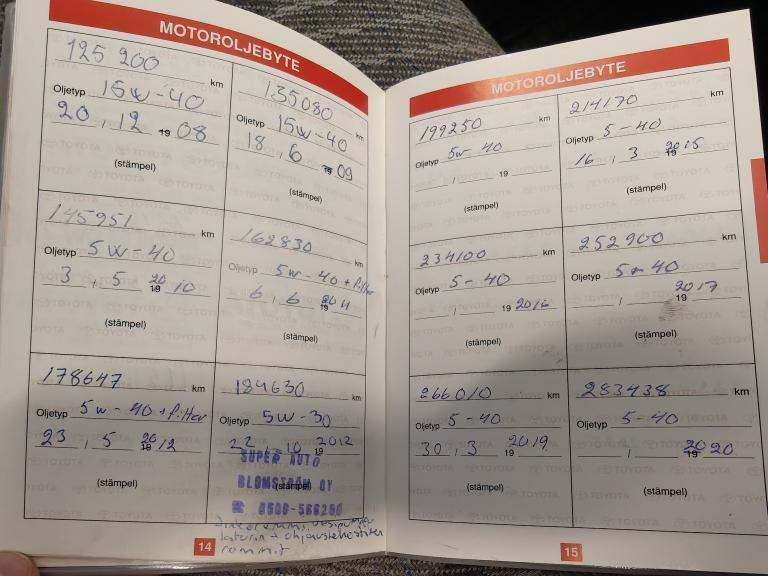 MOTOROLJEBYTE
125 200 km
Oljetyp 15W-40
20 , 12 19 08
(stämpel)
135080 km
Oljetyp 15W-40
18 , 6 19 09
(stämpel)
145951 km
Oljetyp 5W-40
3 , 5 19 20 10
(stämpel)
162830 km
Oljetyp 5W-40 +
6 , 6 19 20 11
(stämpel)
178647 km
Oljetyp 5W-40 +
23 , 5 19 20 12
(stämpel)
184630 km
Oljetyp 5W-30
22 , 10 19 2012
(stämpel)
SUPER AUTO
BLOMSTRÖM OY
☎ 0500-566260
14
MOTOROLJEBYTE
199250 km
Oljetyp 5W-40
, 19
(stämpel)
214170 km
Oljetyp 5-40
16 , 3 19 2015
(stämpel)
234100 km
Oljetyp 5-40
, 19 2016
(stämpel)
252900 km
Oljetyp 5-40
, 19 2017
(stämpel)
266010 km
Oljetyp 5-40
30 , 3 19 2019
(stämpel)
283438 km
Oljetyp 5-40
, 19 2020
(stämpel)
15